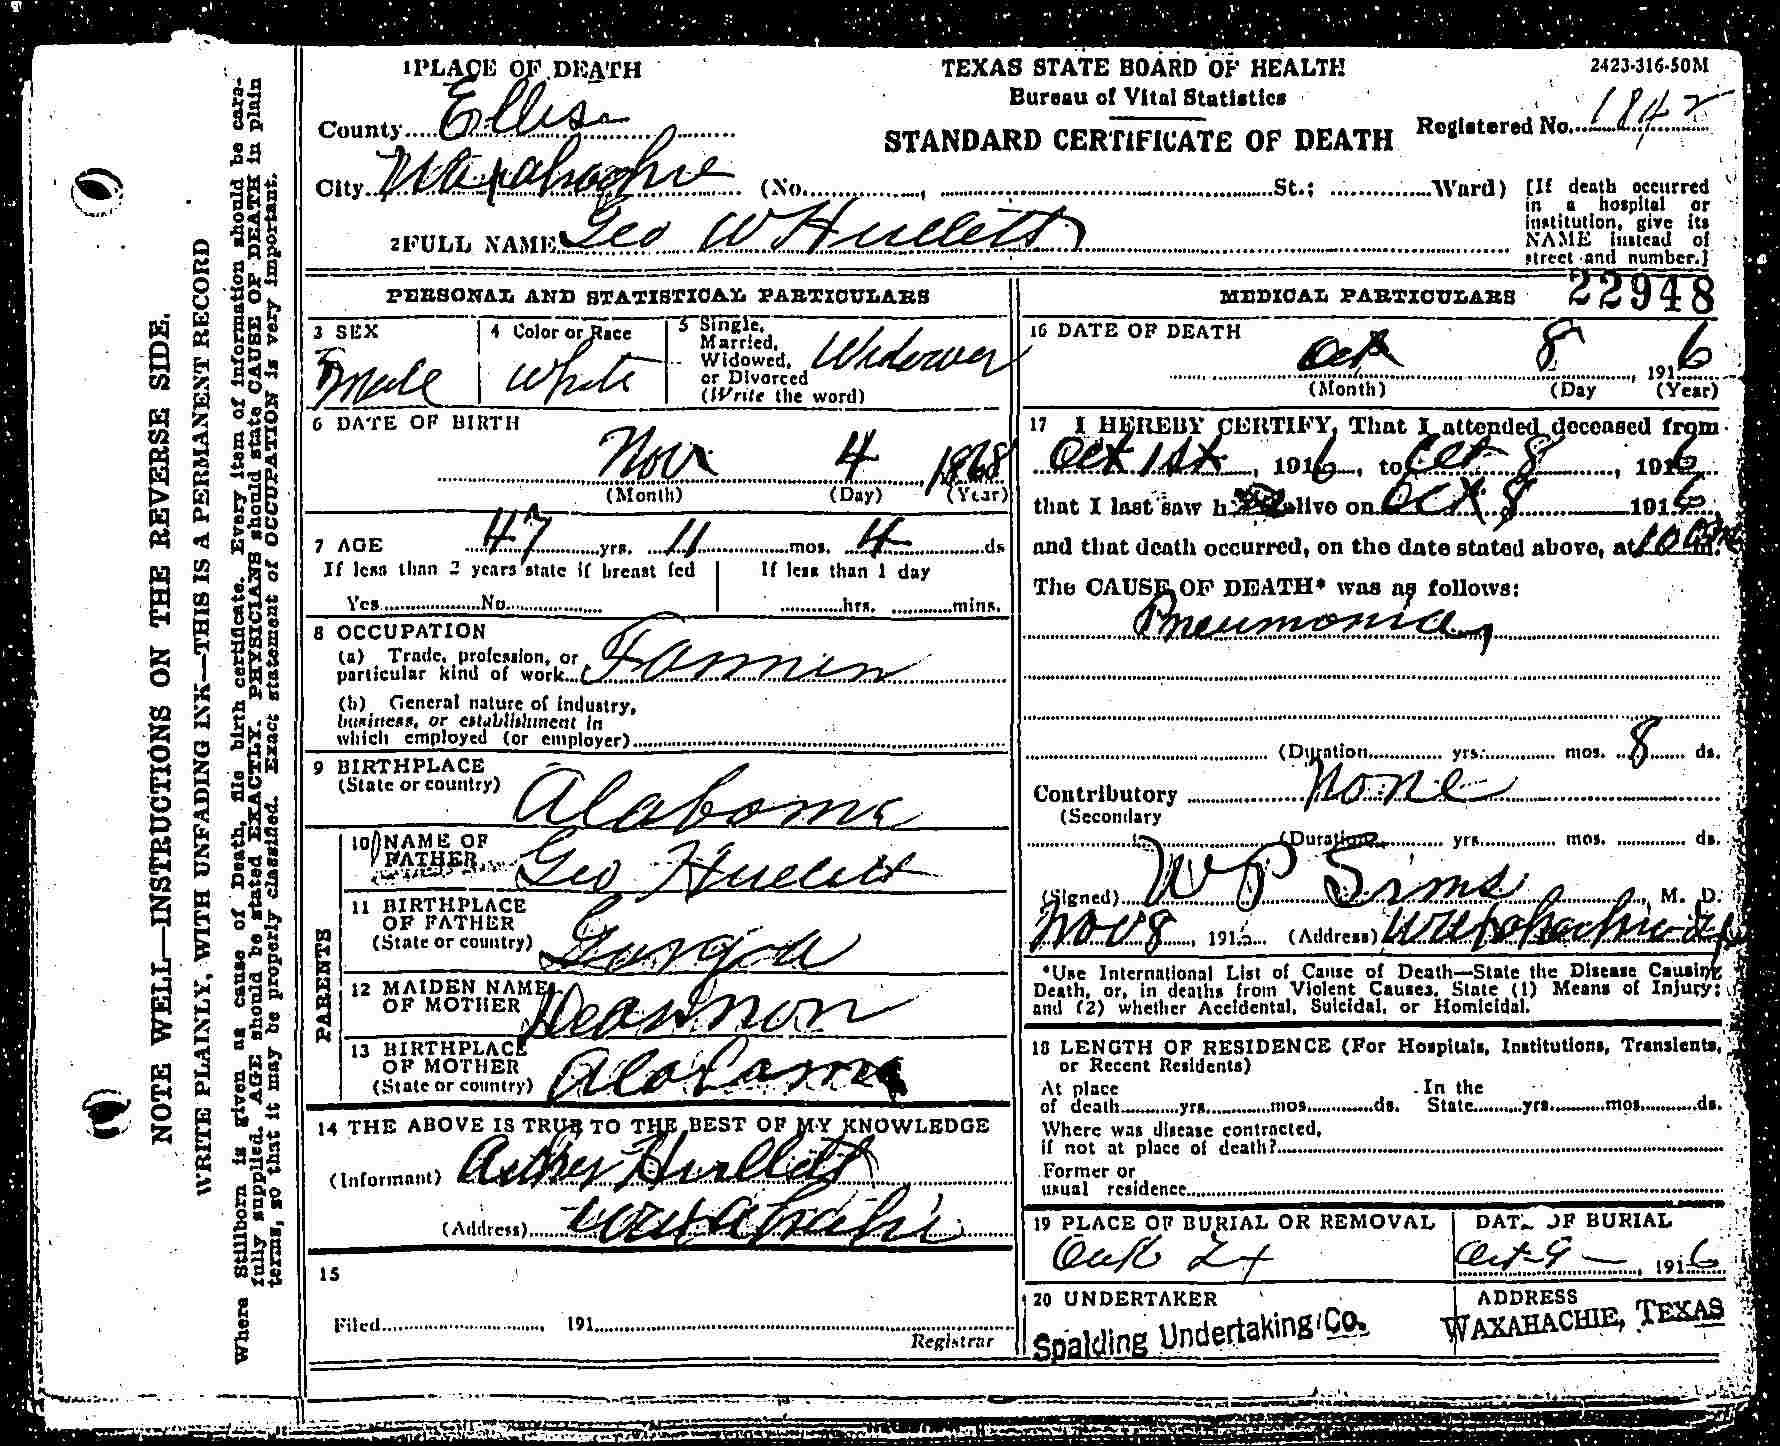 1 PLACE OF DEATH
TEXAS STATE BOARD OF HEALTH
2423-316-50M
Bureau of Vital Statistics
County Ellis
STANDARD CERTIFICATE OF DEATH
Registered No. 1842
City Waxahachie (No. , St.; Ward)
[If death occurred in a hospital or institution, give its NAME instead of street and number.]
2 FULL NAME Geo W Hullett
PERSONAL AND STATISTICAL PARTICULARS
3 SEX
male
4 Color or Race
White
5 Single, Married, Widowed, or Divorced (Write the word)
Widower
6 DATE OF BIRTH
Nov 4 1868
(Month) (Day) (Year)
7 AGE 47 yrs. 11 mos. 4 ds
If less than 2 years state if breast fed
Yes No.
If less than 1 day
hrs. mins.
8 OCCUPATION
(a) Trade, profession, or
particular kind of work
(b) General nature of industry,
business, or establishment in
which employed (or employer)
9 BIRTHPLACE
(State or country) Alabama
PARENTS
10 NAME OF
FATHER Geo Hullett
11 BIRTHPLACE
OF FATHER
(State or country)
12 MAIDEN NAME
OF MOTHER
13 BIRTHPLACE
OF MOTHER
(State or country) Alabama
14 THE ABOVE IS TRUE TO THE BEST OF MY KNOWLEDGE
(Informant) Hullett
(Address) Waxahachie
15
Filed , 191
Registrar
MEDICAL PARTICULARS
22948
16 DATE OF DEATH
Oct 8 , 1916
(Month) (Day (Year)
17 I HEREBY CERTIFY, That I attended deceased from
Oct 1st , 1916 , to Oct 8 , 1916
that I last saw h alive on Oct 8 1916
and that death occurred, on the date stated above, at 10 m.
The CAUSE OF DEATH* was as follows:
Pneumonia,
(Duration yrs. mos. 8 ds.
Contributory None
(Secondary
(Duration yrs. mos. ds.
(Signed) W P Sims , M. D.
Nov 8 , 191 (Address) Waxahachie
*Use International List of Cause of Death—State the Disease Causing
Death, or, in deaths from Violent Causes, State (1) Means of Injury;
and (2) whether Accidental, Suicidal, or Homicidal.
18 LENGTH OF RESIDENCE (For Hospitals, Institutions, Transients,
or Recent Residents)
At place
of death yrs. mos. ds.
In the
State yrs. mos. ds.
Where was disease contracted,
if not at place of death?
Former or
usual residence
19 PLACE OF BURIAL OR REMOVAL
DATE OF BURIAL
Oct 9 — , 1916
20 UNDERTAKER
Spalding Undertaking Co.
ADDRESS
WAXAHACHIE, TEXAS
NOTE WELL—INSTRUCTIONS ON THE REVERSE SIDE.
WRITE PLAINLY, WITH UNFADING INK—THIS IS A PERMANENT RECORD
Where Stillborn is given as cause of Death, file birth certificate. Every item of information should be care-
fully supplied. AGE should be stated EXACTLY. PHYSICIANS should state CAUSE OF DEATH in plain
terms, so that it may be properly classified. Exact statement of OCCUPATION is very important.